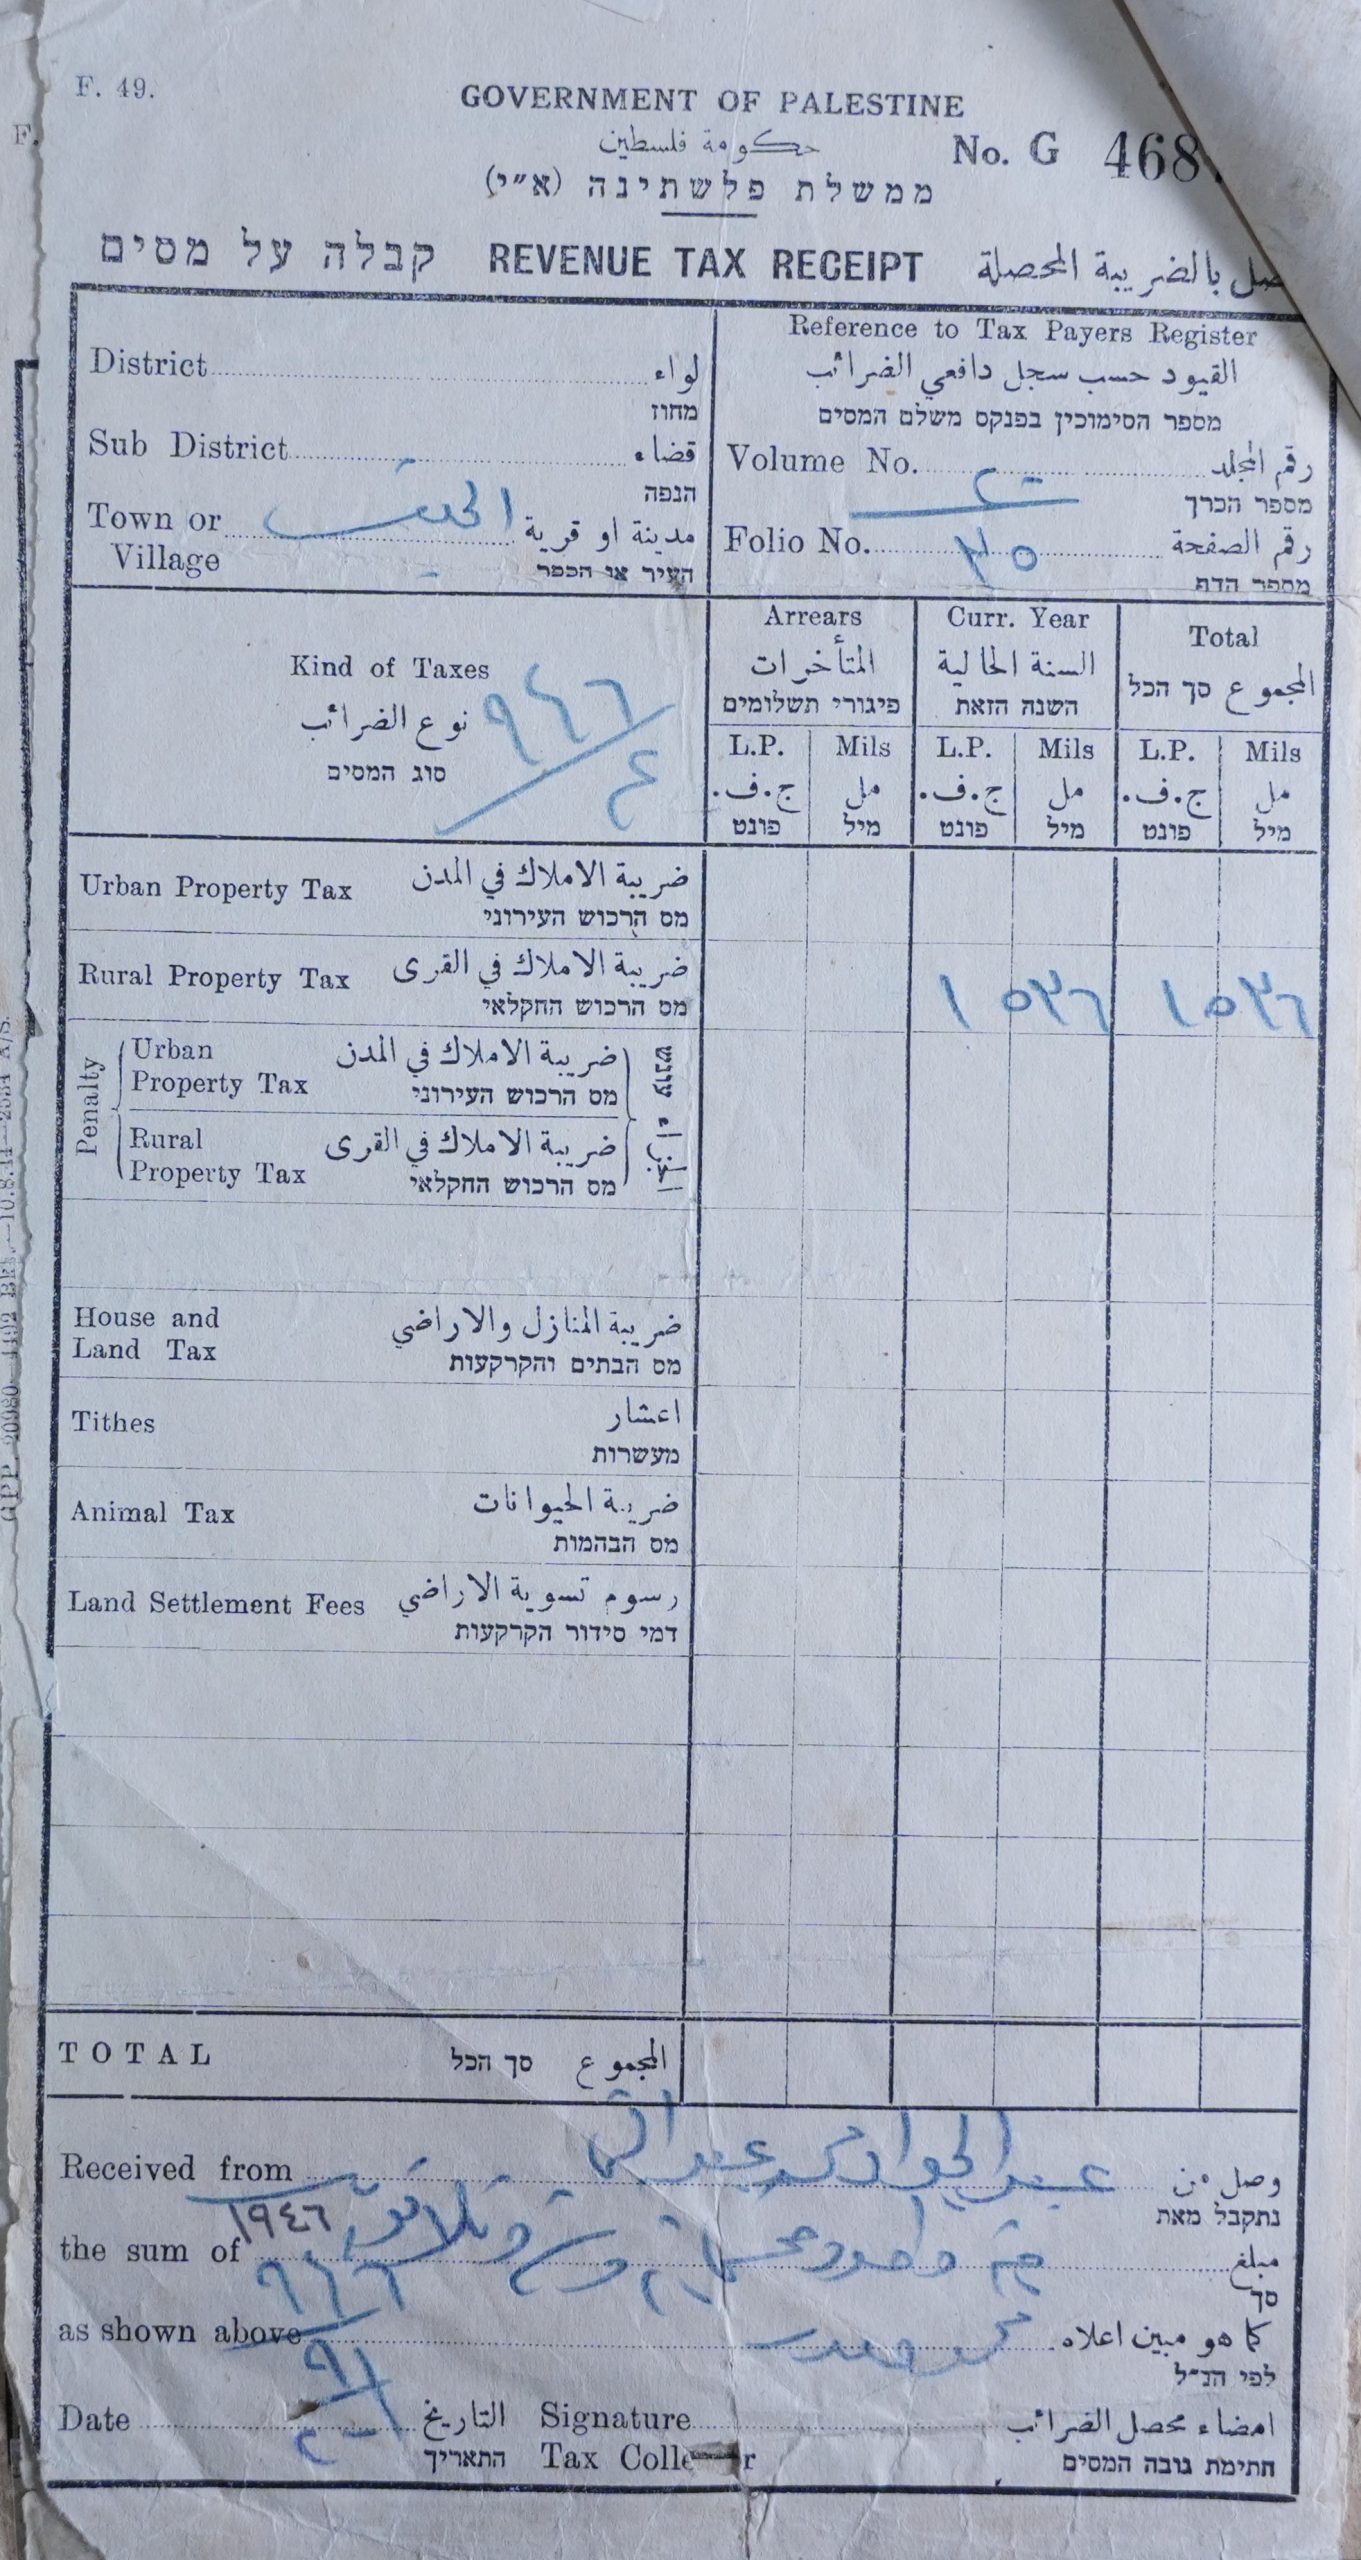 F. 49.
GOVERNMENT OF PALESTINE
حكومة فلسطين
No. G 468
ממשלת פלשתינה (א״י)
קבלה על מסים REVENUE TAX RECEIPT بالضريبة المحصلة
District لواء
מחוז
Sub District قضاء
הנפה
Town or Village مدينة او قرية
העיר או הכפר
Reference to Tax Payers Register
القيود حسب سجل دافعي الضرائب
מספר הסימוכין בפנקס משלם המסים
Volume No. رقم المجلد
מספר הכרך
Folio No. ٣٥ رقم الصفحة
מספר הדף
Kind of Taxes
نوع الضرائب
סוג המסים
٩٤٦
٤
Arrears
المتأخرات
פיגורי תשלומים
Curr. Year
السنة الحالية
השנה הזאת
Total
المجموع סך הכל
L.P. Mils L.P. Mils L.P. Mils
ج.ف. مل ج.ف. مل ج.ف. مل
פונט מיל פונט מיל פונט מיל
Urban Property Tax ضريبة الاملاك في المدن
מס הרכוש העירוני
Rural Property Tax ضريبة الاملاك في القرى
מס הרכוש החקלאי
١ ٥٣٦ ١ ٥٣٦
Penalty
Urban Property Tax ضريبة الاملاك في المدن
מס הרכוש העירוני
עונש
Rural Property Tax ضريبة الاملاك في القرى
מס הרכוש החקלאי
House and Land Tax ضريبة المنازل والاراضي
מס הבתים והקרקעות
Tithes اعشار
מעשרות
Animal Tax ضريبة الحيوانات
מס הבהמות
Land Settlement Fees رسوم تسوية الاراضي
דמי סידור הקרקעות
TOTAL סך הכל المجموع
Received from عبد الجواد وصل من
נתקבל מאת
١٩٤٦
the sum of مبلغ
סך
as shown above كما هو مبين اعلاه
לפי הנ״ל
Date التاريخ Signature امضاء محصل الضرائب
התאריך Tax Colle r חתימת גובה המסים